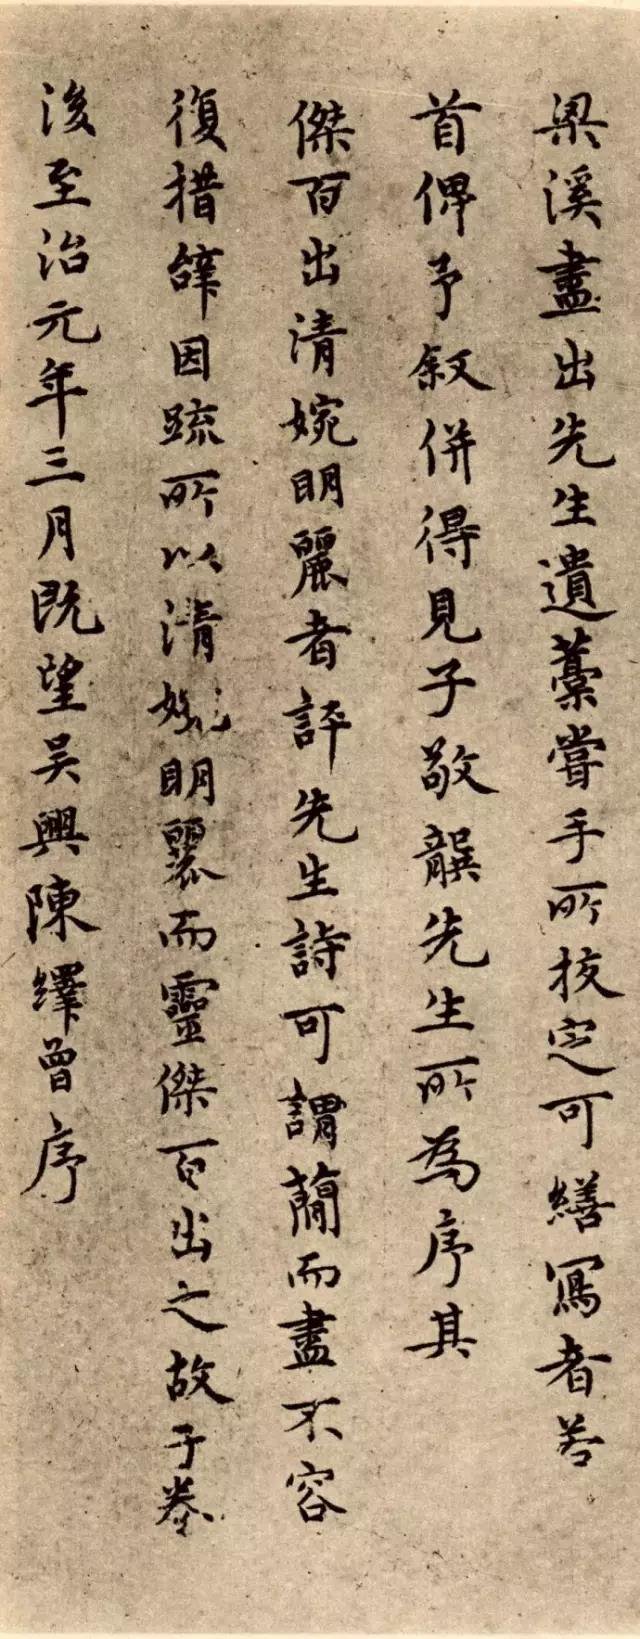 梁溪盡出先生遺藁嘗手所挍定可繕寫者若
首俾予叙併得見子敬龔先生所為序其
傑百出清婉明麗者評先生詩可謂蕳而盡不容
復措辝因疏所以清婉明麗而靈傑百出之故于卷
後至治元年三月既望吴興陳繹曾序